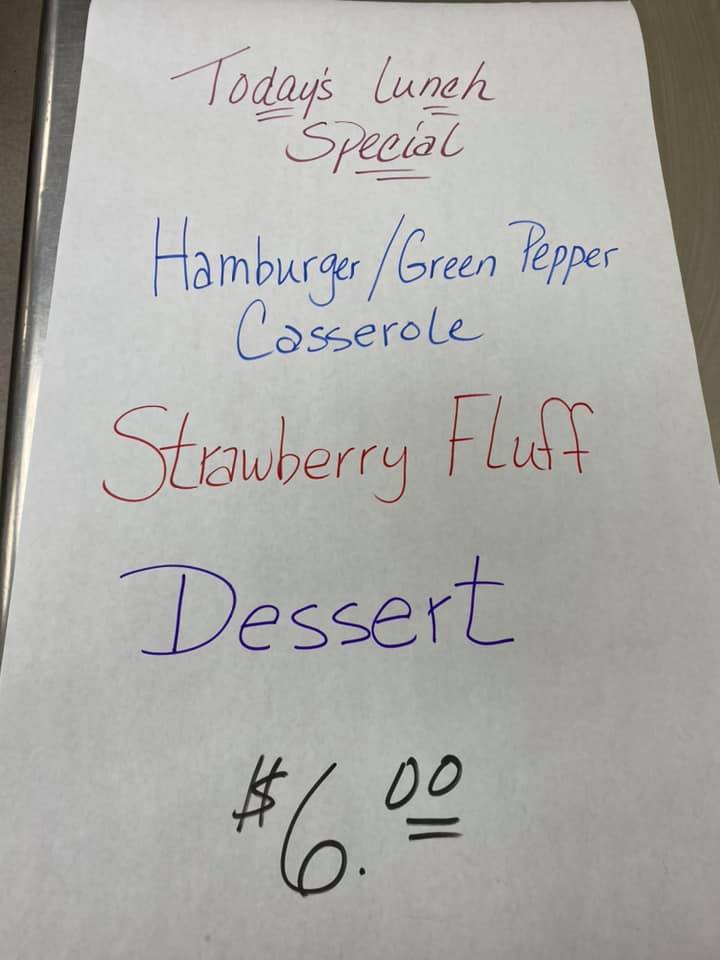 Today's Lunch
Special
Hamburger/Green Pepper
Casserole
Strawberry Fluff
Dessert
$6.00